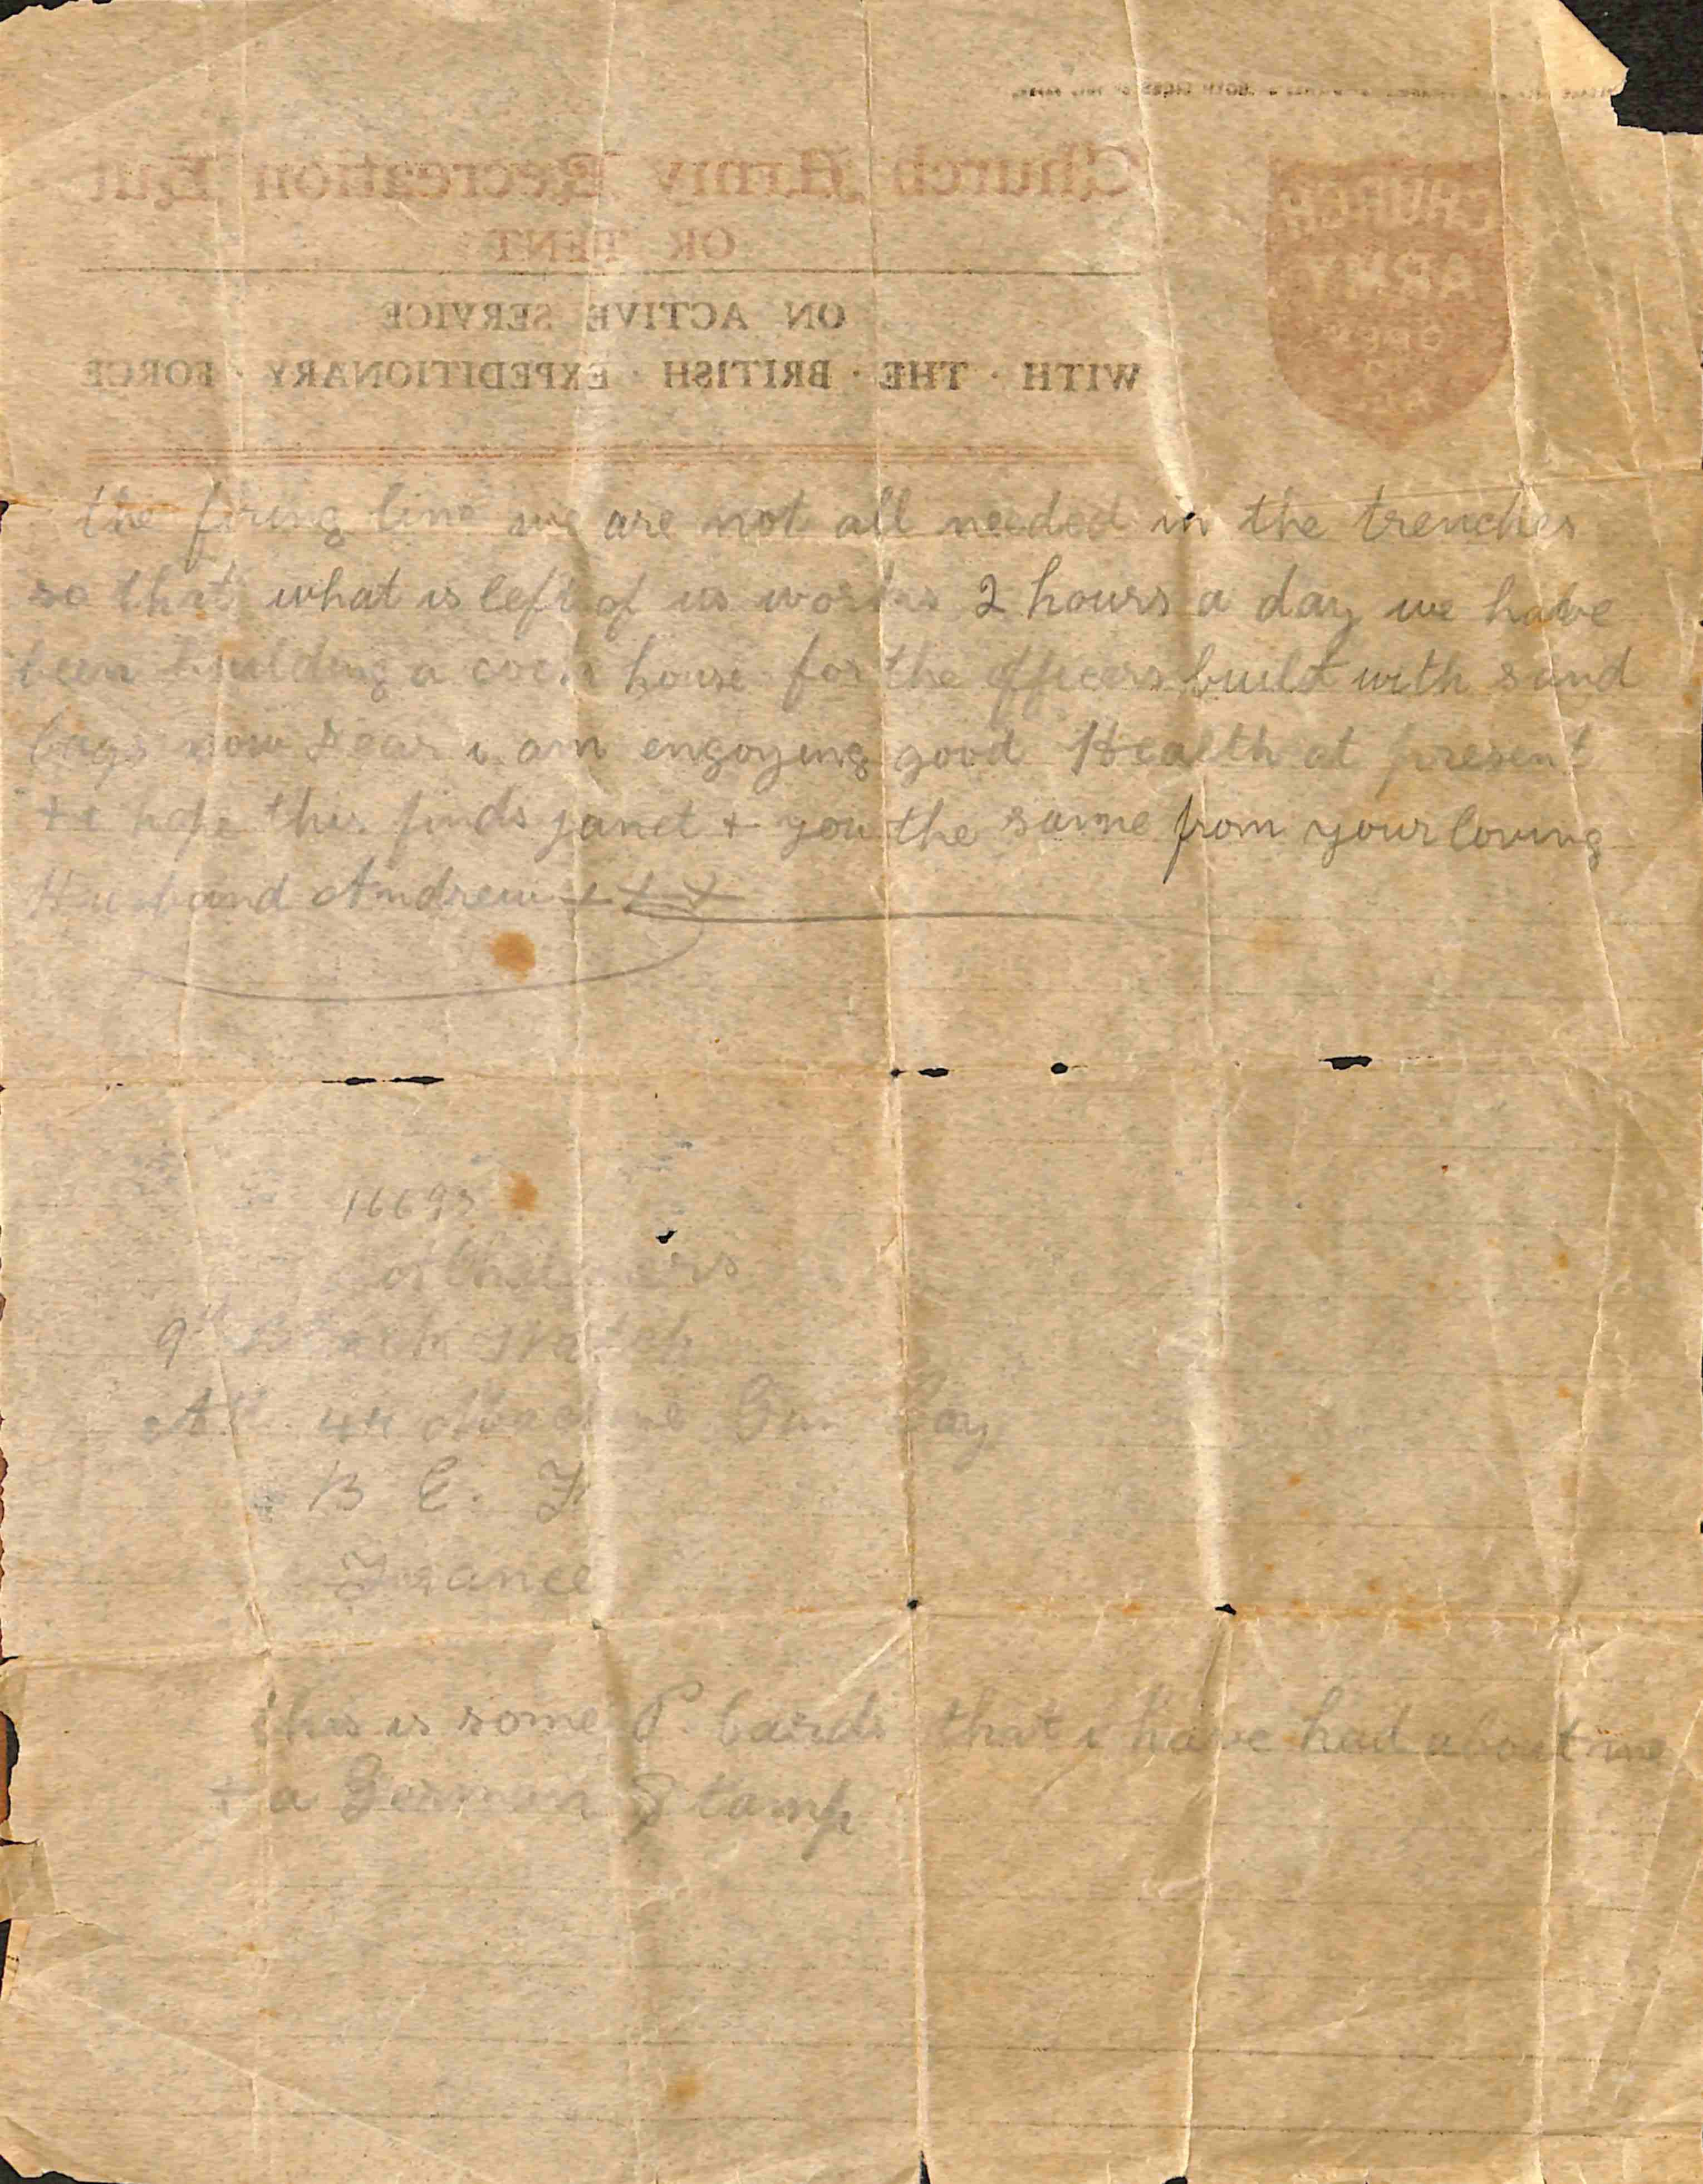 Church Army Recreation Hut
OR TENT
ON ACTIVE SERVICE
WITH · THE · BRITISH · EXPEDITIONARY · FORCE
CHURCH
ARMY
the firing line we are not all needed in the trenches
so that what is left of us works 2 hours a day we have
been building a cook house for the officers build with sand
bags now Dear i am engoying good Health at present
+ i hope this finds janet + you the same from your loving
Husband Andrew + X X
16693
9th Black Watch
Att. 44 Machine Gun Coy
B E. F
France
this is some P. Cards that i have had about me
+ a German Stamp